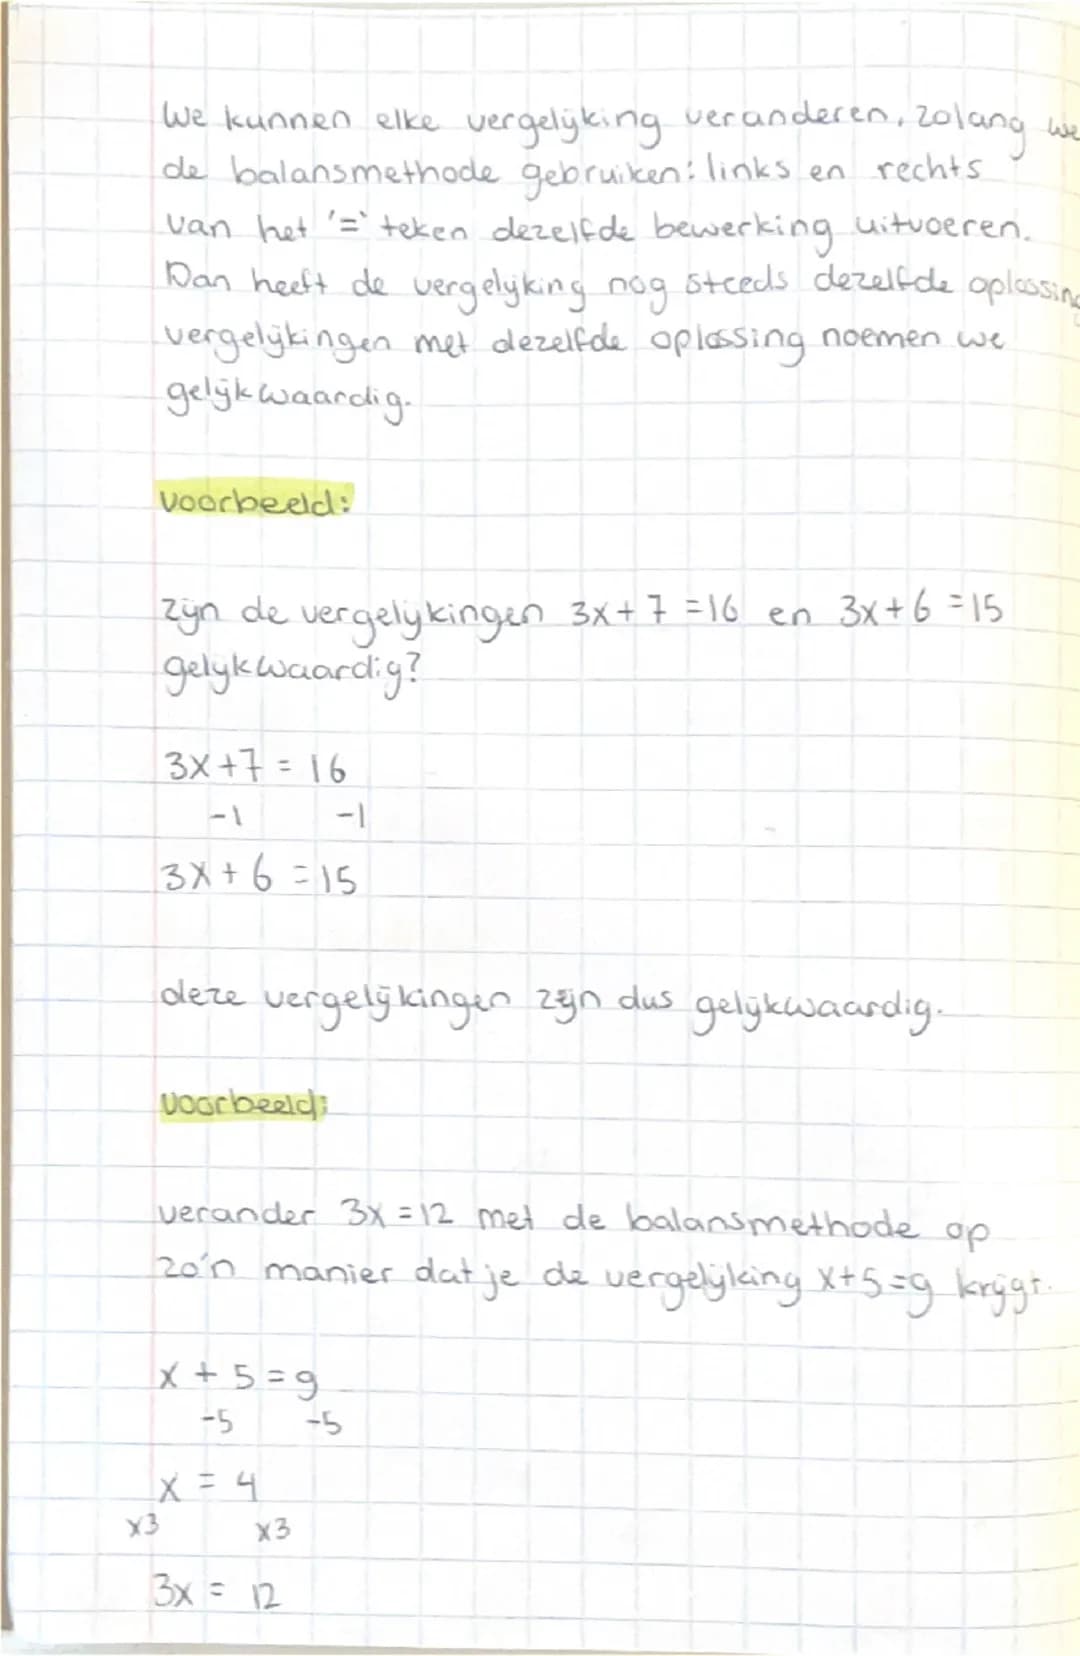 We kunnen elke vergelijking veranderen, zolang we
de balansmethode gebruiken: links en rechts
van het '=' teken dezelfde bewerking uitvoeren.
Dan heeft de vergelijking nog steeds dezelfde oplossing
vergelijkingen met dezelfde oplossing noemen we
gelijkwaardig.
voorbeeld:
zijn de vergelijkingen 3x+7=16 en 3x+6=15
gelijkwaardig?
3x+7=16
-1 -1
3x+6=15
deze vergelijkingen zijn dus gelijkwaardig.
voorbeeld:
verander 3x=12 met de balansmethode op
zo'n manier dat je de vergelijking x+5=9 krijgt.
x+5=9
-5 -5
x=4
x3 x3
3x=12